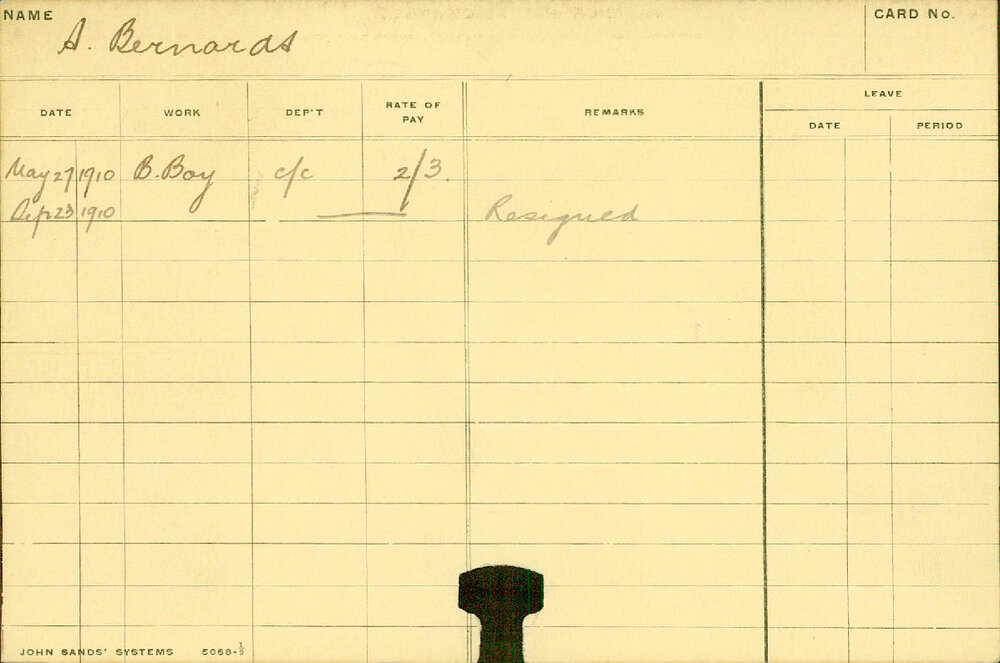 NAME
A. Bernards
CARD No.
DATE WORK DEP'T RATE OF PAY REMARKS LEAVE
DATE PERIOD
May 27 1910 B. Boy c/c 2/3.
Sep 23 1910 Resigned
JOHN SANDS' SYSTEMS 5068-½